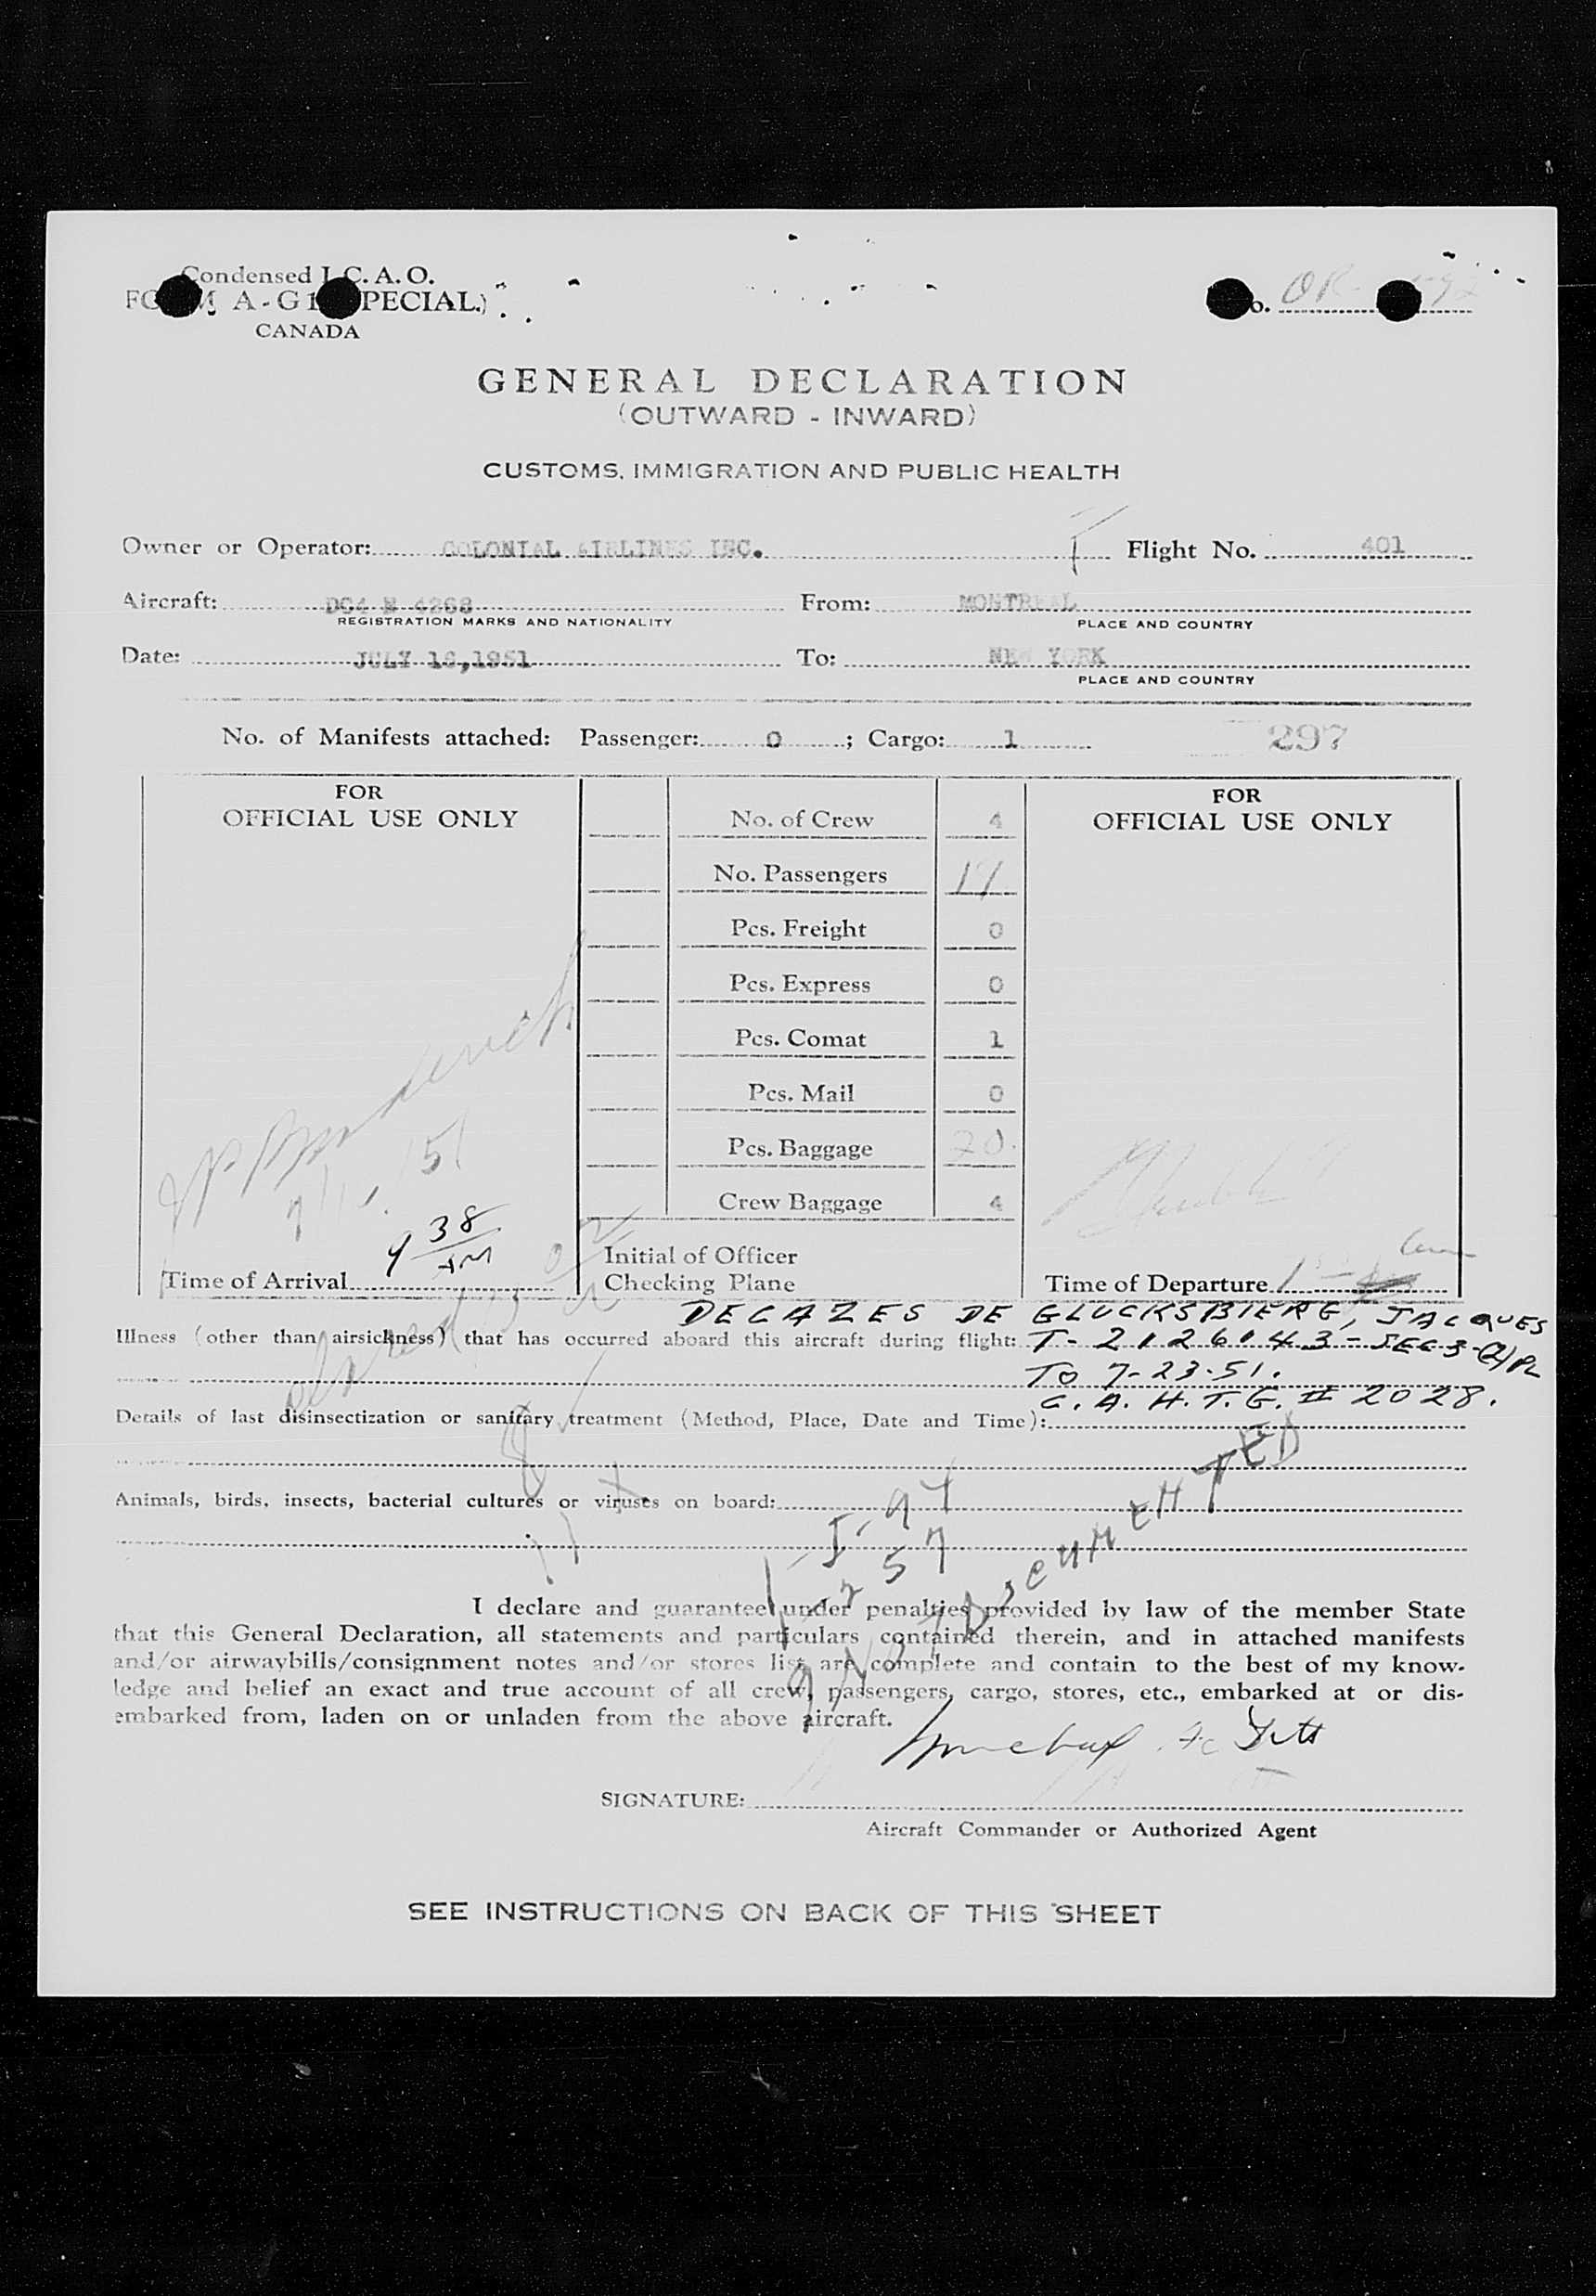 Condensed I.C.A.O.
A-G1 SPECIAL)
CANADA
GENERAL DECLARATION
(OUTWARD - INWARD)
CUSTOMS, IMMIGRATION AND PUBLIC HEALTH
Owner or Operator: COLONIAL AIRLINES INC. Flight No. 401
Aircraft: DC4 From: MONTREAL
REGISTRATION MARKS AND NATIONALITY PLACE AND COUNTRY
Date: JULY 1951 To: NEW YORK
PLACE AND COUNTRY
No. of Manifests attached: Passenger: 0 ; Cargo: 1 297
FOR FOR
OFFICIAL USE ONLY OFFICIAL USE ONLY
No. of Crew 4
No. Passengers 17
Pcs. Freight 0
Pcs. Express 0
Pcs. Comat 1
Pcs. Mail 0
Pcs. Baggage 20
Crew Baggage 4
Initial of Officer
Checking Plane
9 38
AM
Time of Arrival Time of Departure
DECAZES DE GLUCKSBIERG, JACQUES
Illness (other than airsickness) that has occurred aboard this aircraft during flight: T-2126143-SEC 3-(2) PL
TO 7-23-51.
Details of last disinsectization or sanitary treatment (Method, Place, Date and Time): C.A.H.T.G. # 2028.
Animals, birds, insects, bacterial cultures or viruses on board:
I declare and guarantee under penalties provided by law of the member State
that this General Declaration, all statements and particulars contained therein, and in attached manifests
and/or airwaybills/consignment notes and/or stores list are complete and contain to the best of my know-
ledge and belief an exact and true account of all crew, passengers, cargo, stores, etc., embarked at or dis-
embarked from, laden on or unladen from the above aircraft.
SIGNATURE:
Aircraft Commander or Authorized Agent
SEE INSTRUCTIONS ON BACK OF THIS SHEET